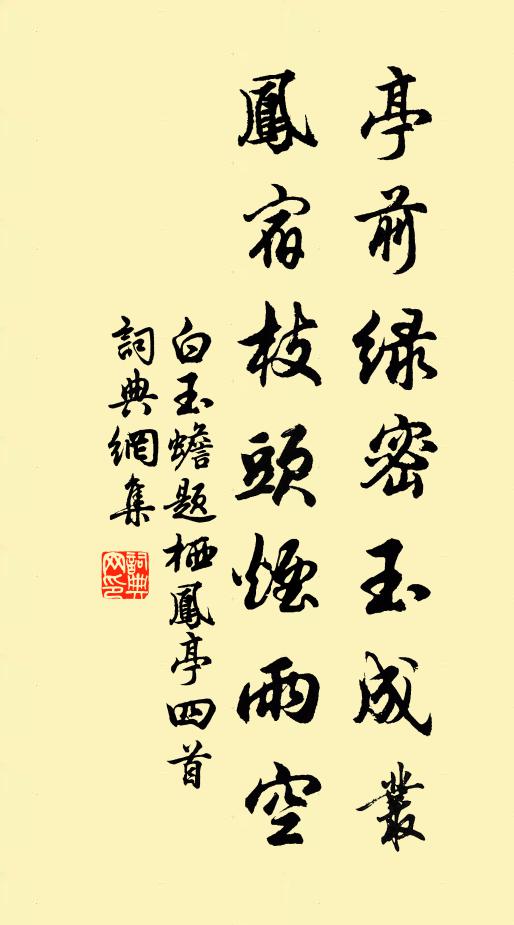 亭前綠密玉成叢
鳳宿枝頭煙雨空
白玉蟾題栖鳳亭四首
詞典網集
詞典
网印